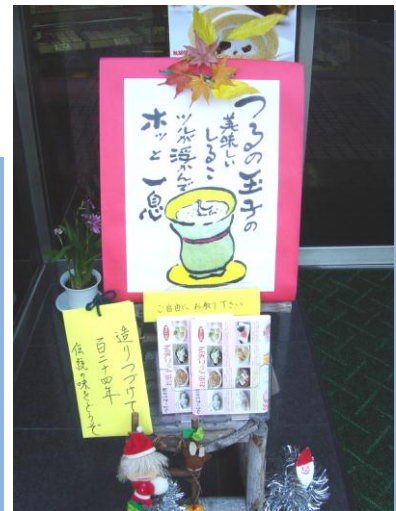 つるの玉子の
美味しい
しるこ
ツルが浮かんで
ホッと一息
ご自由にお取り下さい
造りつづけて
百二十四年
伝統の味をどうぞ